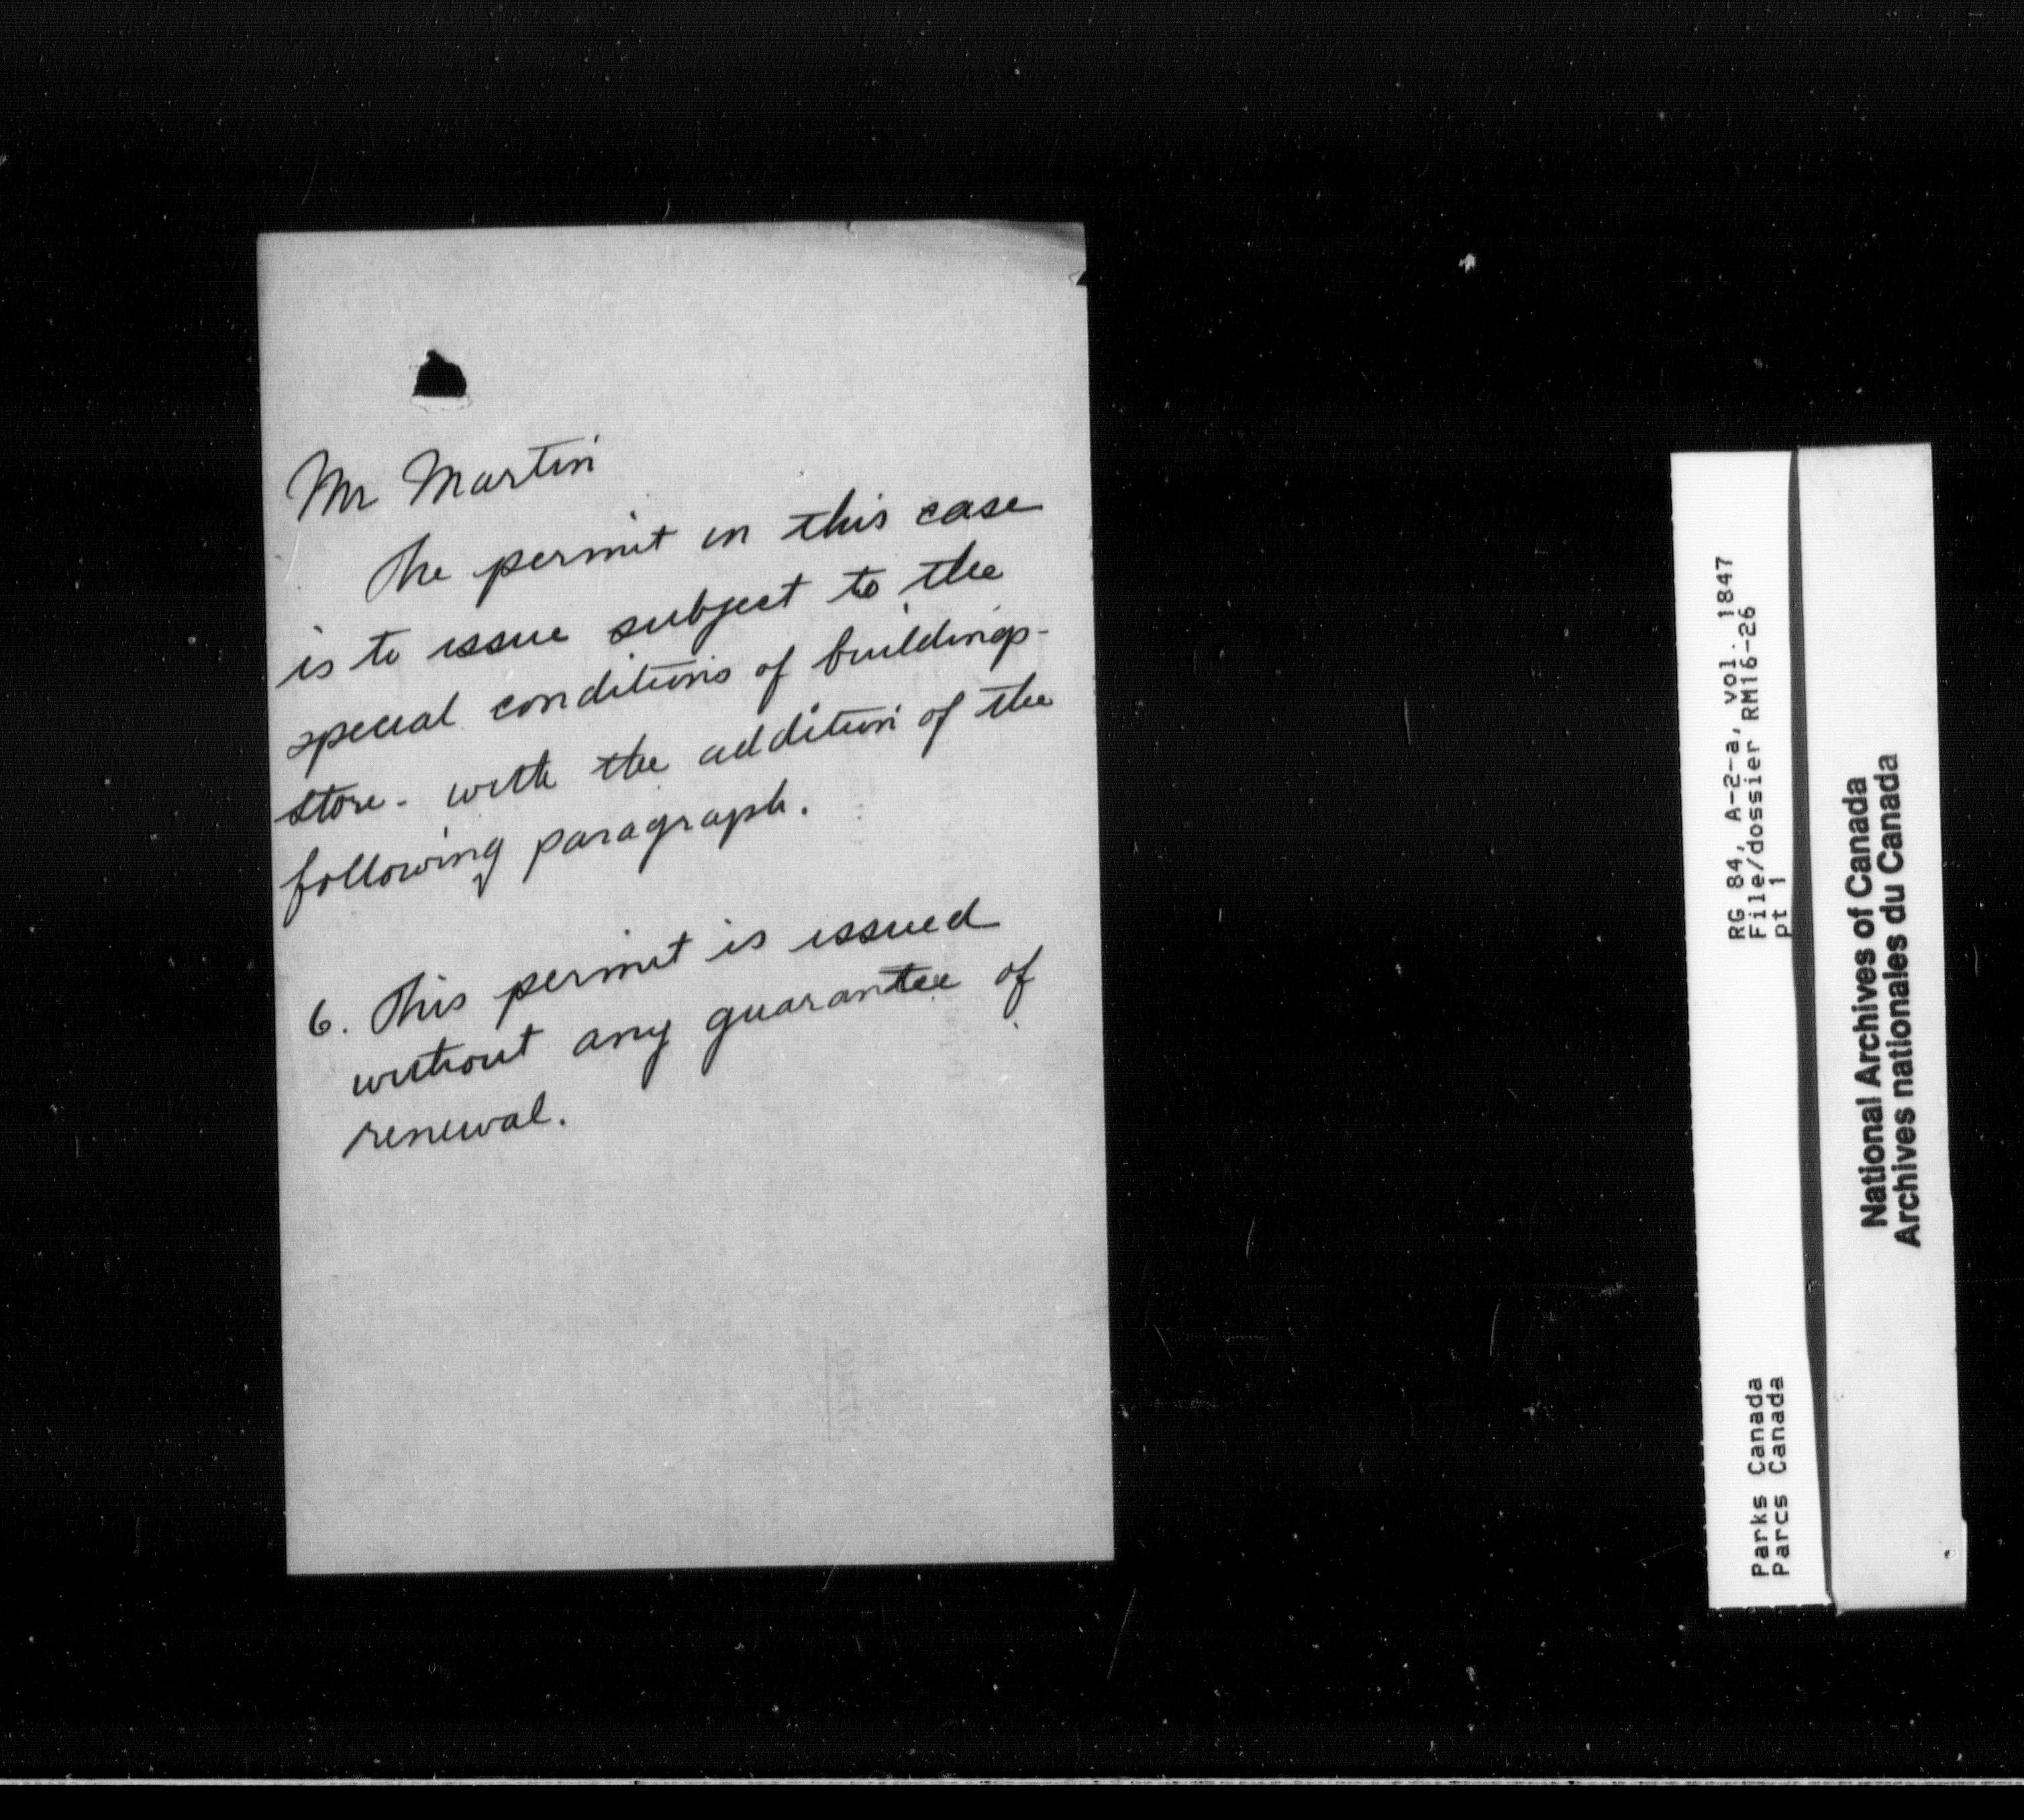 Mr Martin
The permit in this case
is to issue subject to the
special conditions of buildings-
store - with the addition of the
following paragraph.
6. This permit is issued
without any guarantee of
renewal.
RG 84, A-2-a, vol. 1847
File/dossier RM16-26
pt 1
Parks Canada
Parcs Canada
National Archives of Canada
Archives nationales du Canada